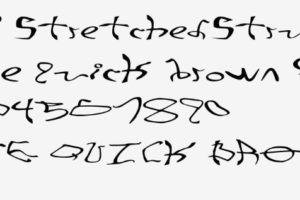 StretchedStru
e Quick brown
04567890
E QUICK BRO